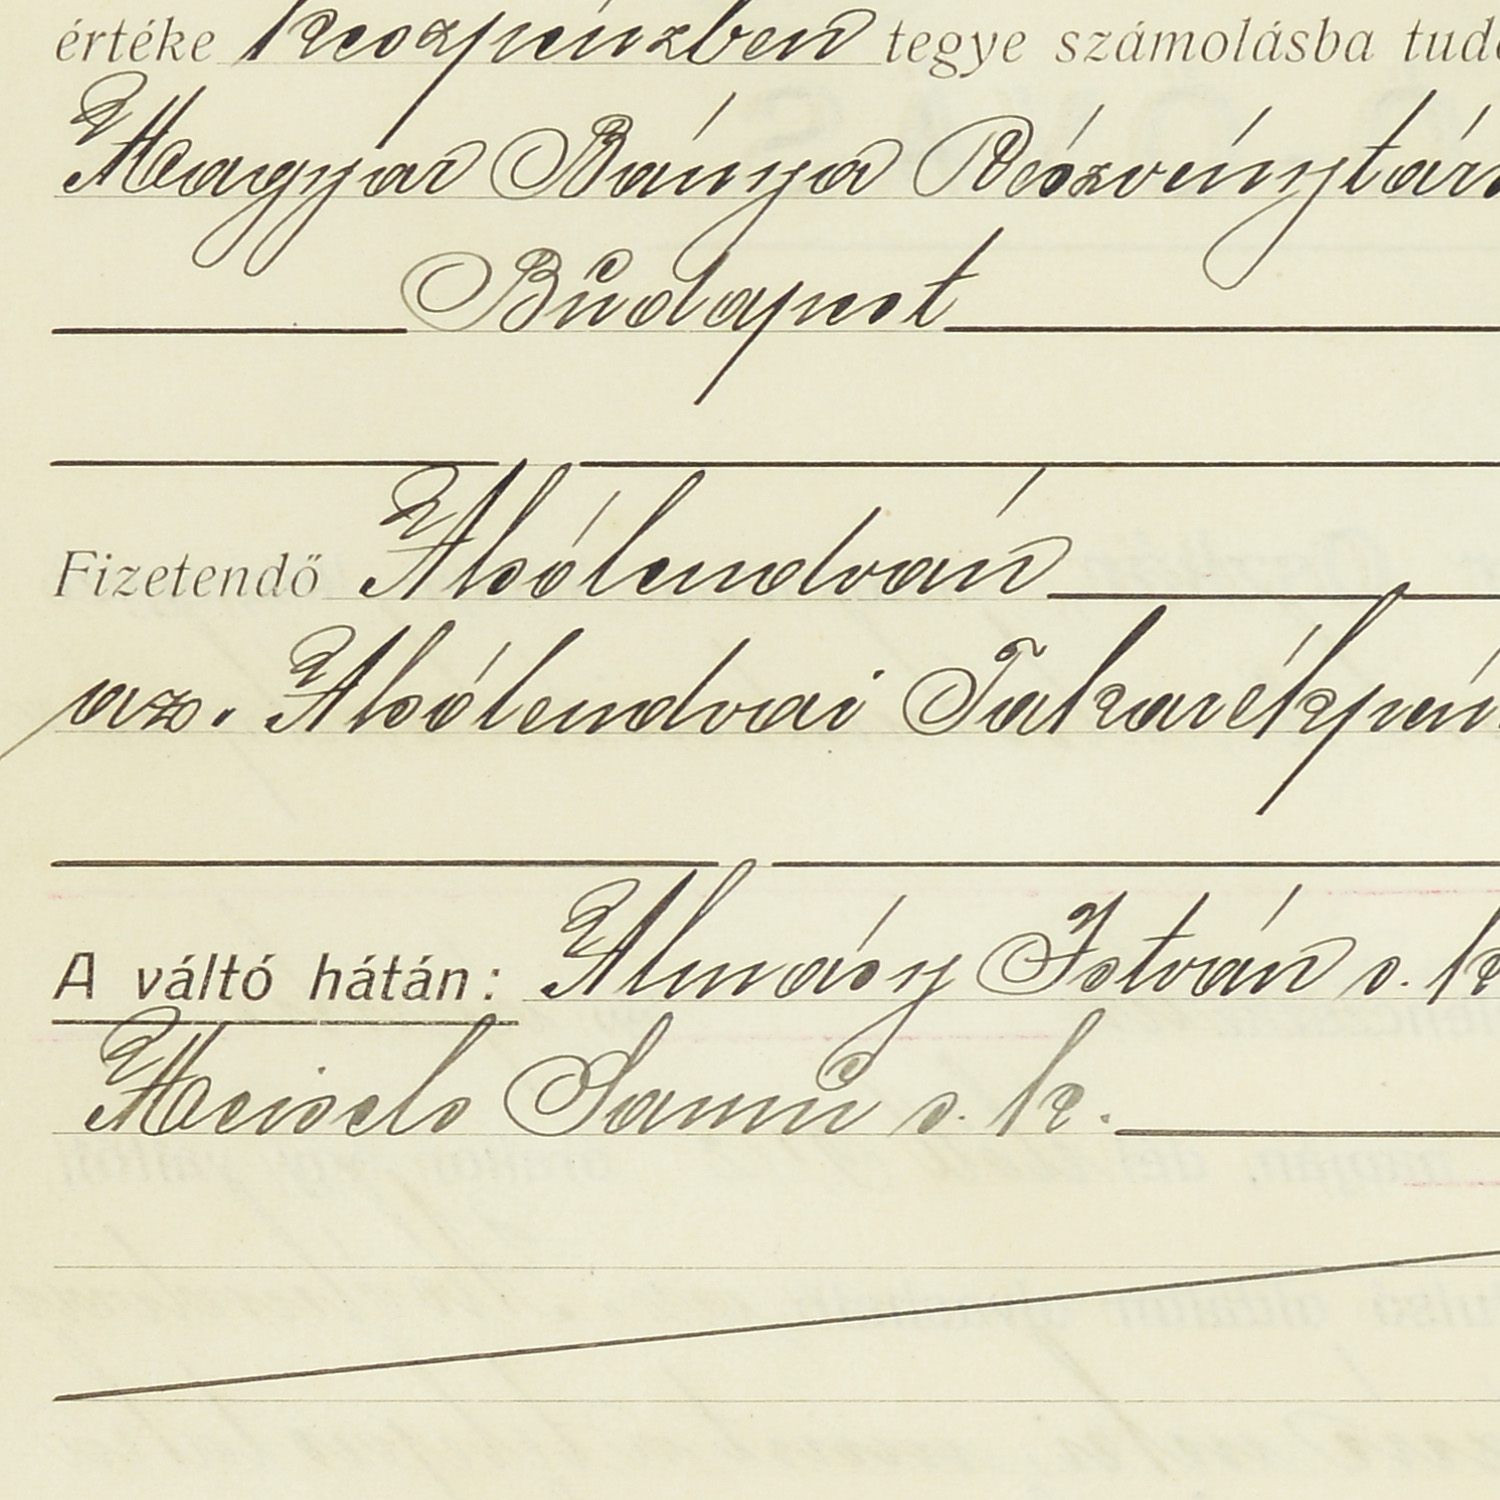 értéke készpénzben tegye számolásba
Magyar Bánya Részvénytárs
Budapest
Fizetendő Alsólendván
az. Alsólendvai Takarékpén
A váltó hátán: Almásy István s. k
Meisels Samu s. k.